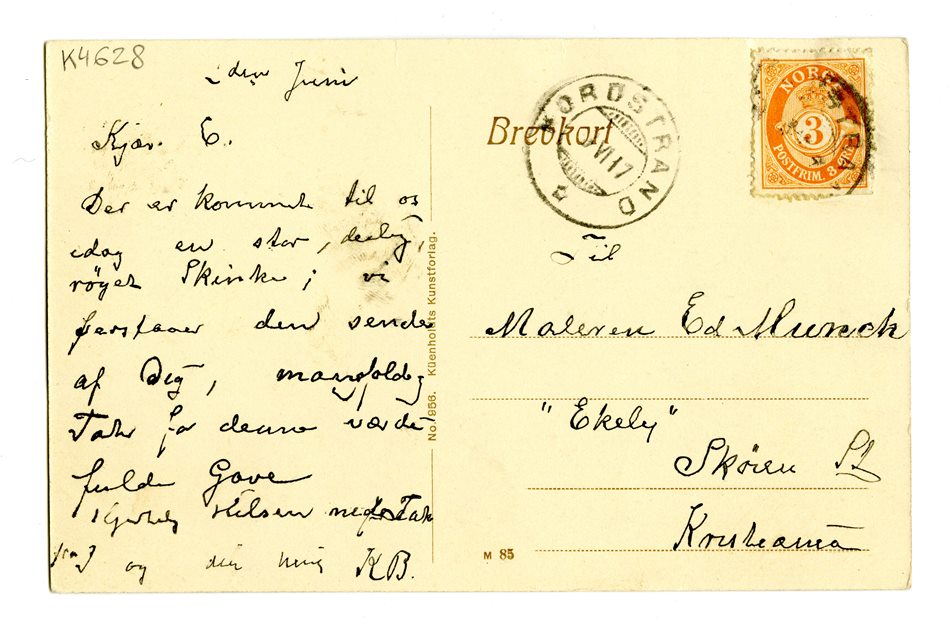 K4628
den Juni
Kjær. E.
Der er kommet til os
idag en stor, deilig,
røget Skinke; vi
forstaaer den sendt
af Dig, mangfoldig
Tak for denne værdi
fulde Gave
Hjertelig Hilsen med Tak
fra I og din hengi KB.
No. 956. Küenholdts Kunstforlag.
Brevkort
NORDSTRAND
VI 17
NORGE
3
POSTFRIM. 3 ØRE
STRA
Til
Maleren Ed Munch
"Ekely"
Skøien St
Kristiania
M 85